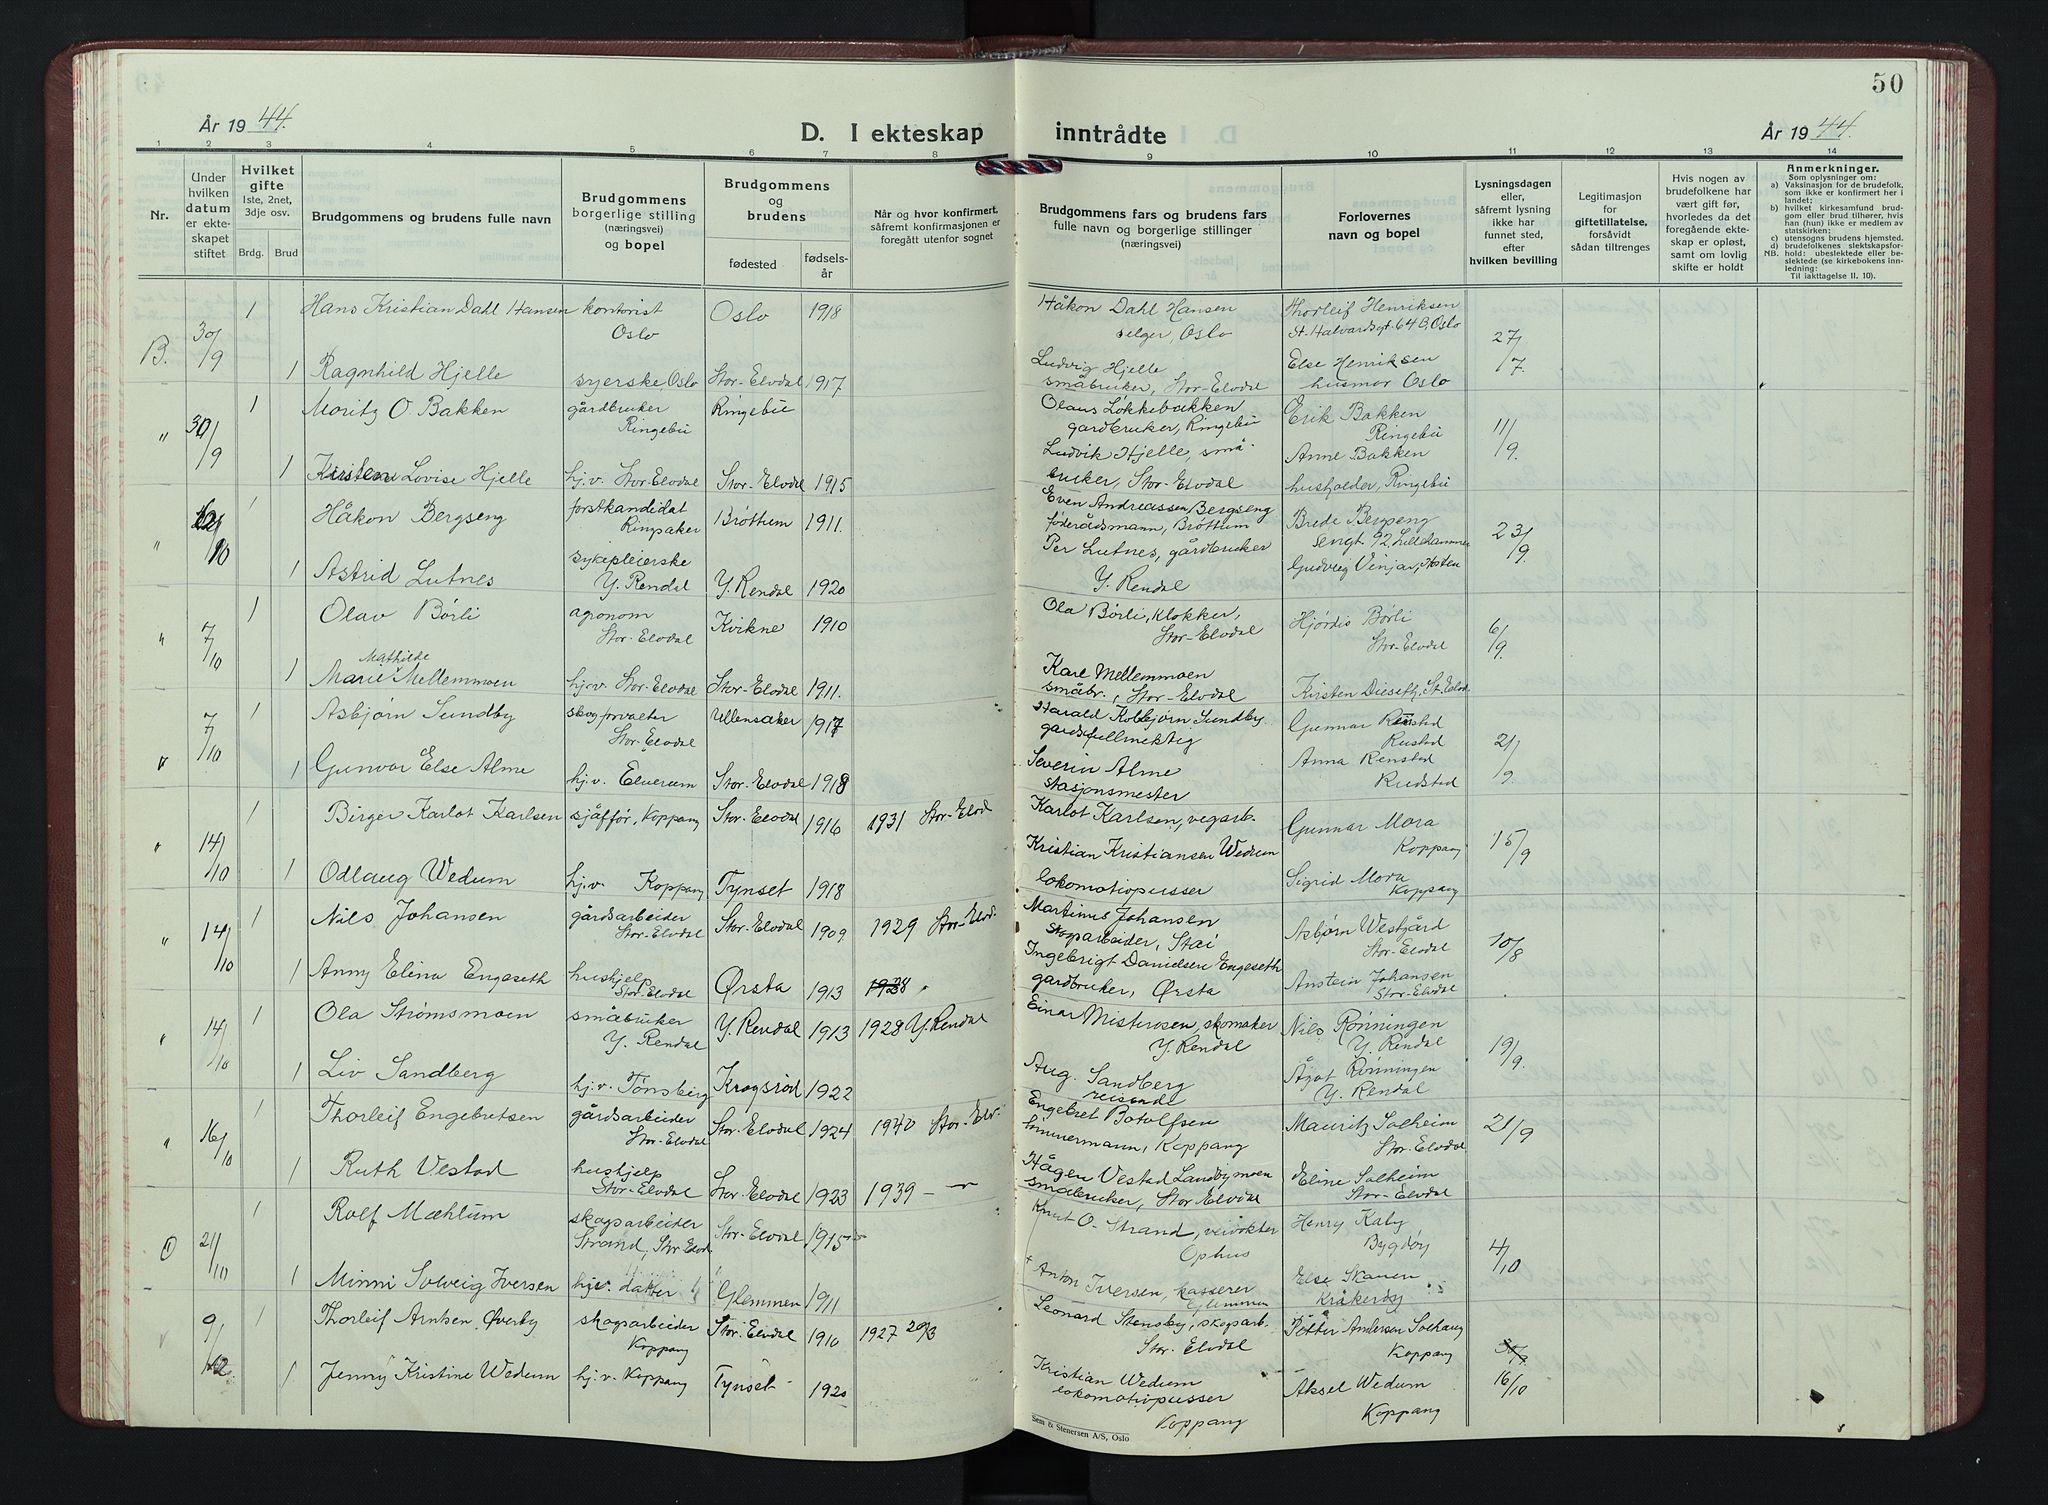 50
År 1944.
D. I ekteskap
inntrådte
År 1944.
1 2 3 4 5 6 7 8 9 10 11 12 13 14
Nr.
Under hvilken datum er ekteskapet stiftet
Hvilket gifte 1ste, 2net, 3dje osv.
Brdg. Brud
Brudgommens og brudens fulle navn
Brudgommens borgerlige stilling (næringsvei) og bopel
Brudgommens og brudens
fødested
fødselsår
Når og hvor konfirmert, såfremt konfirmasjonen er foregått utenfor sognet
Brudgommens fars og brudens fars fulle navn og borgerlige stillinger (næringsvei)
Forlovernes navn og bopel
Lysningsdagen eller, såfremt lysning ikke har funnet sted, efter hvilken bevilling
Legitimasjon for giftetillatelse, forsåvidt sådan tiltrenges
Hvis nogen av brudefolkene har vært gift før, hvorledes da det foregående ekteskap er opløst, samt om lovlig skifte er holdt
Anmerkninger.
Som oplysninger om:
a) Vaksinasjon for de brudefolk, som ikke er konfirmert her i landet;
b) hvilket kirkesamfund brudgom eller brud tilhører, hvis han (hun) ikke er medlem av statskirken;
c) utensogns brudens hjemsted.
d) brudefolkenes slektskapsforhold: ubeslektede eller beslektede (se kirkebokens innledning:
NB. Til iakttagelse II, 10).
B. 30/9 1 Hans Kristian Dahl Hansen kontorist Oslo Oslo 1918 Håkon Dahl Hansen selger, Oslo Thorleif Henriksen St. Halvardsgt. 64 B, Oslo 27/7
1 Ragnhild Hjelle syerske, Oslo Stor-Elvdal 1917 Ludvig Hjelle småbruker, Stor-Elvdal Else Henriksen husmor Oslo
" 30/9 1 Moritz O. Bakken gårdbruker Ringebu Ringebu Olaus Løkkebakken gardbruker, Ringebu Erik Bakken Ringebu 11/9
1 Kirsten Lovise Hjelle hj.v. Stor-Elvdal Stor-Elvdal 1915 Ludvik Hjelle, småbruker, Stor-Elvdal Anne Bakken husholder, Ringebu
" /10 1 Håkon Bergseng forstkandidat Ringsaker Brøttum 1911. Even Andreassen Bergseng føderådsmann, Brøttum Brede Bergseng 92, Lillehammer 23/9
1 Astrid Lutnes sykepleierske Y. Rendal Y. Rendal 1920 Per Lutnes, gårdbruker Y. Rendal Gudveig Venjar,
" 7/10 1 Olav Børli agronom Stor-Elvdal Kvikne 1910 Ola Børli, klokker, Stor-Elvdal Hjørdis Børli Stor-Elvdal 6/9
1 Marie Mathilde Mellemmoen hj.v. Stor-Elvdal Stor-Elvdal 1911. Karl Mellemmoen småbr., Stor-Elvdal Kirsten Dieseth, St. Elvd.
" 7/10 1 Asbjørn Sundby skogforvalter Stor-Elvdal Ullensaker 1917 Harald Kolbjørn Sundby gardsfullmektig Gunnar Renstad Rustad 21/9
1 Gunvor Else Alme hj.v. Elverum Stor-Elvdal 1918 Severin Alme stasjonsmester Anna Renstad Rudstad
" 14/10 1 Birger Karlot Karlsen sjåffør, Koppang Stor-Elvdal 1916 1931 Stor-Elvd Karlot Karlsen, vegarb. Gunnar Mora Koppang 15/9
1 Odlaug Wedum hj.v. Koppang Tynset 1918 Kristian Kristiansen Wedum lokomotivpusser Sigrid Mora Koppang
" 14/10 1 Nils Johansen gårdsarbeider Stor-Elvdal Stor-Elvdal 1909 1929 Stor-Elvd. Martinus Johansen skogarbeider, Stai Asbjørn Westgård Stor-Elvdal 10/8
1 Anny Elina Engeseth hushjelp Stor-Elvdal Ørsta 1913 1928 Ingebrigt Danielsen Engeseth gardbruker, Ørsta Anstein Johansen Stor-Elvdal
" 14/10 1 Ola Strømsmoen småbruker Y. Rendal Y. Rendal 1913 1928 Y. Rendal Einar Misterosen, skomaker Y. Rendal Nils Rønningen Y. Rendal 19/9
1 Liv Sandberg hj.v. Tønsberg 1922 Aug. Sandberg reisende Ågot Rønningen Y. Rendal
" 16/10 1 Thorleif Engebretsen gårdsarbeider Stor-Elvdal Stor-Elvdal 1924 1940 Stor-Elv. Engebret Botolfsen tømmermann, Koppang Mauritz Solheim Stor-Elvdal 21/9
1 Ruth Vestad hushjelp Stor-Elvdal Stor-Elvdal 1923 1939 — " — Hågen Vestad Landbymoen småbruker, Stor Elvdal Eline Solheim Stor-Elvdal
21/10 1 Rolf Mæhlum skogsarbeider Strand, Stor Elvd Stor-Elvdal 1915 Knut O. Strand, veivokter Ophus Henry Kaby Bygdøy 4/10
1 Minni Solveig Iversen hj.v. datter Glemmen 1911 Anton Iversen, kasserer Glemmen Else Skauen Kråkerøy
9/12 1 Thorleif Arntsen Øverby skogsarbeider Koppang Stor-Elvdal 1910 1927 20/3 Leonard Stensby, skogsarb. Stor-Elvdal Petter Andersen Solhaug Koppang 16/10
1 Jenny Kristine Wedum hj.v. Koppang Tynset 1920 Kristian Wedum lokomotivpusser Koppang Aksel Wedum Koppang
Sem & Stenersen A/S, Oslo